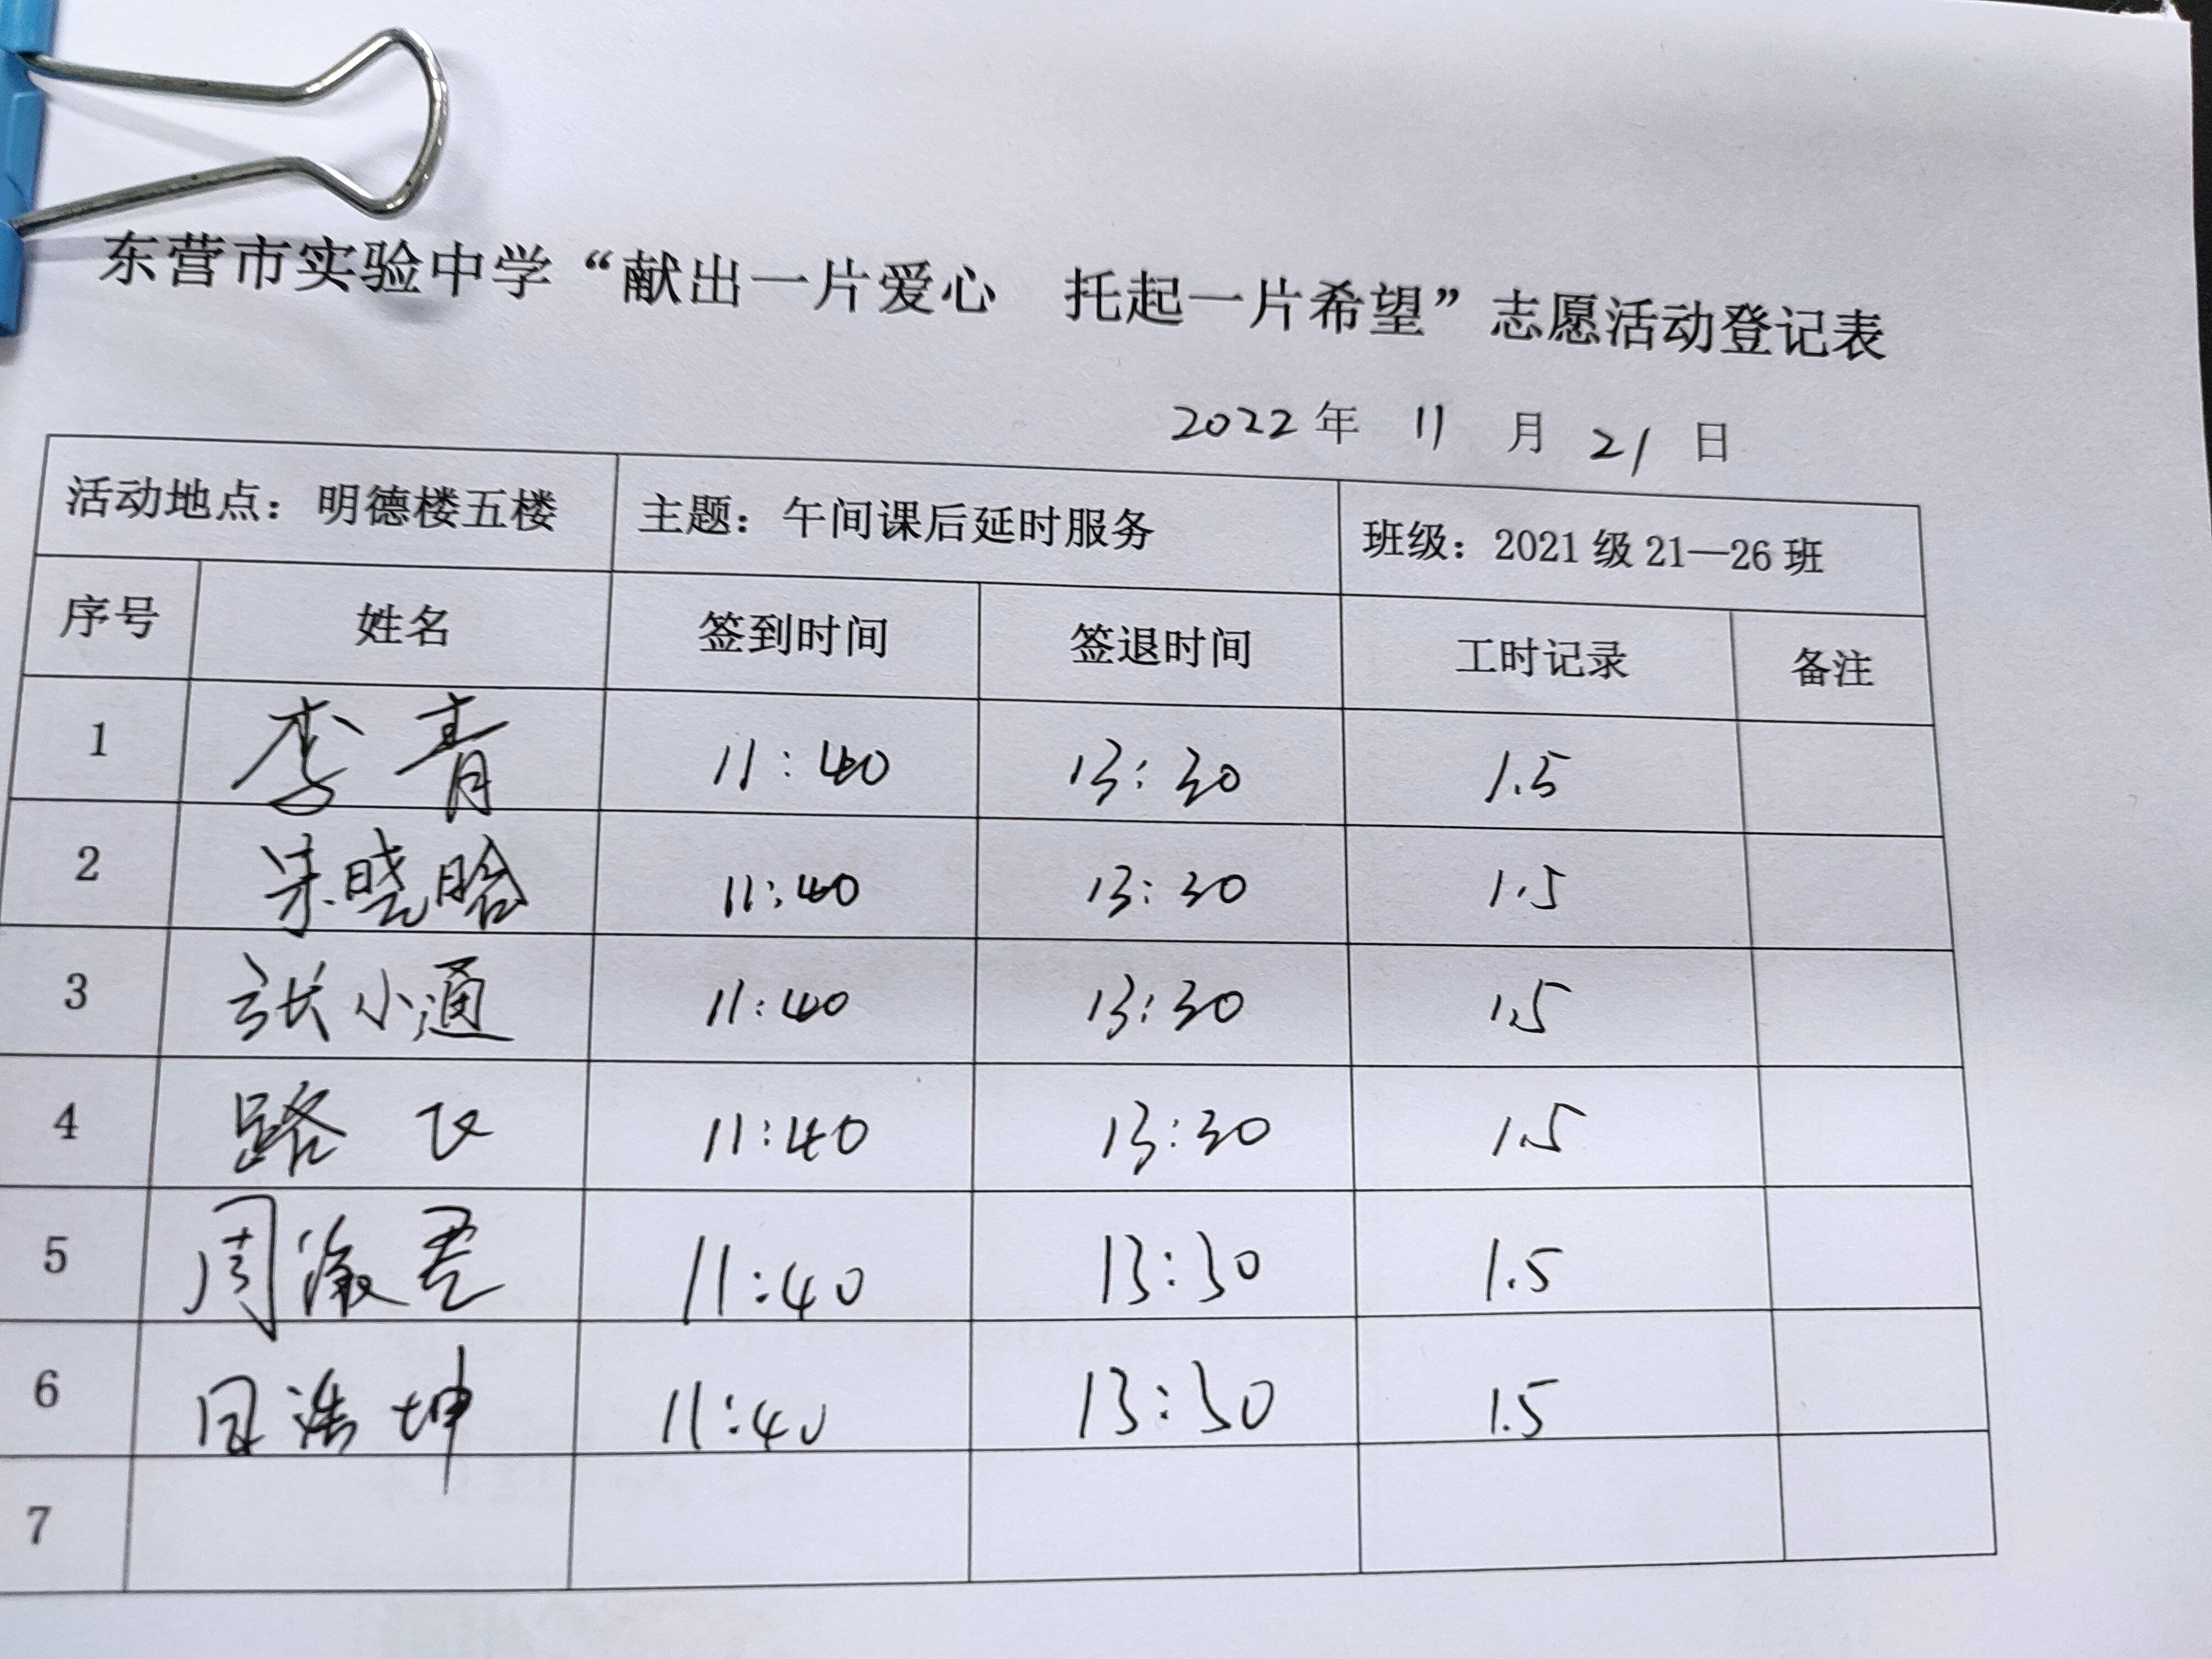 东营市实验中学“献出一片爱心 托起一片希望”志愿活动登记表
2022 年 11 月 21 日
活动地点：明德楼五楼 主题：午间课后延时服务 班级：2021 级 21—26 班
序号 姓名 签到时间 签退时间 工时记录 备注
1 李青 11:40 13:30 1.5
2 晓晗 11:40 13:30 1.5
3 张小通 11:40 13:30 1.5
4 路飞 11:40 13:30 1.5
5 周 11:40 13:30 1.5
6 浩坤 11:40 13:30 1.5
7